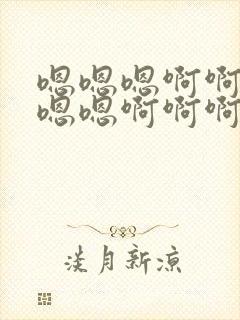 嗯嗯嗯啊啊
嗯嗯啊啊啊
淡月新凉